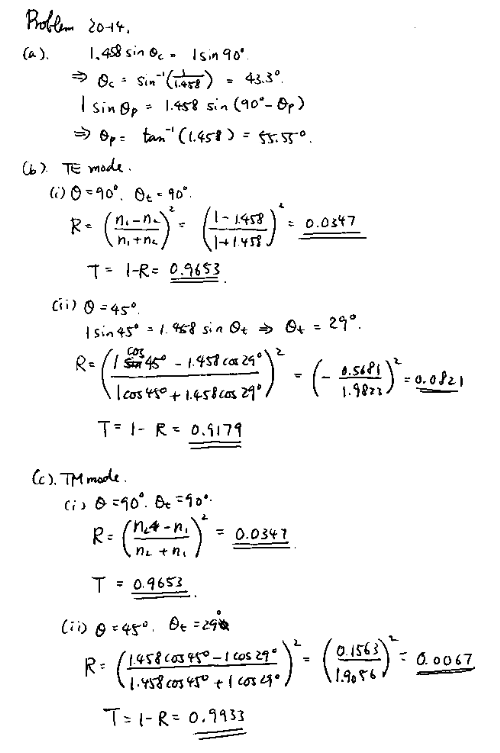 Problem 20-14.
(a). 1.458 sin θc = 1 sin 90°
⇒ θc = sin⁻¹(1/1.458) = 43.3°.
1 sin θp = 1.458 sin (90° - θp)
⇒ θp = tan⁻¹ (1.458) = 55.55°.
(b). TE mode.
(i) θ = 90°, θt = 90°.
R = ((n₁ - n₂)/(n₁ + n₂))² = ((1 - 1.458)/(1 + 1.458))² = 0.0347
T = 1-R = 0.9653
(ii) θ = 45°.
1 sin 45° = 1.458 sin θt ⇒ θt = 29°.
R = ((1 cos 45° - 1.458 cos 29°)/(1 cos 45° + 1.458 cos 29°))² = (- 0.5681/1.9823)² = 0.0821
T = 1 - R = 0.9179
(c). TM mode.
(i) θ = 90°. θt = 90°.
R = ((n₂ - n₁)/(n₂ + n₁))² = 0.0347
T = 0.9653
(ii) θ = 45°. θt = 29°
R = ((1.458 cos 45° - 1 cos 29°)/(1.458 cos 45° + 1 cos 29°))² = (0.1563/1.9056)² = 0.0067
T = 1 - R = 0.9933